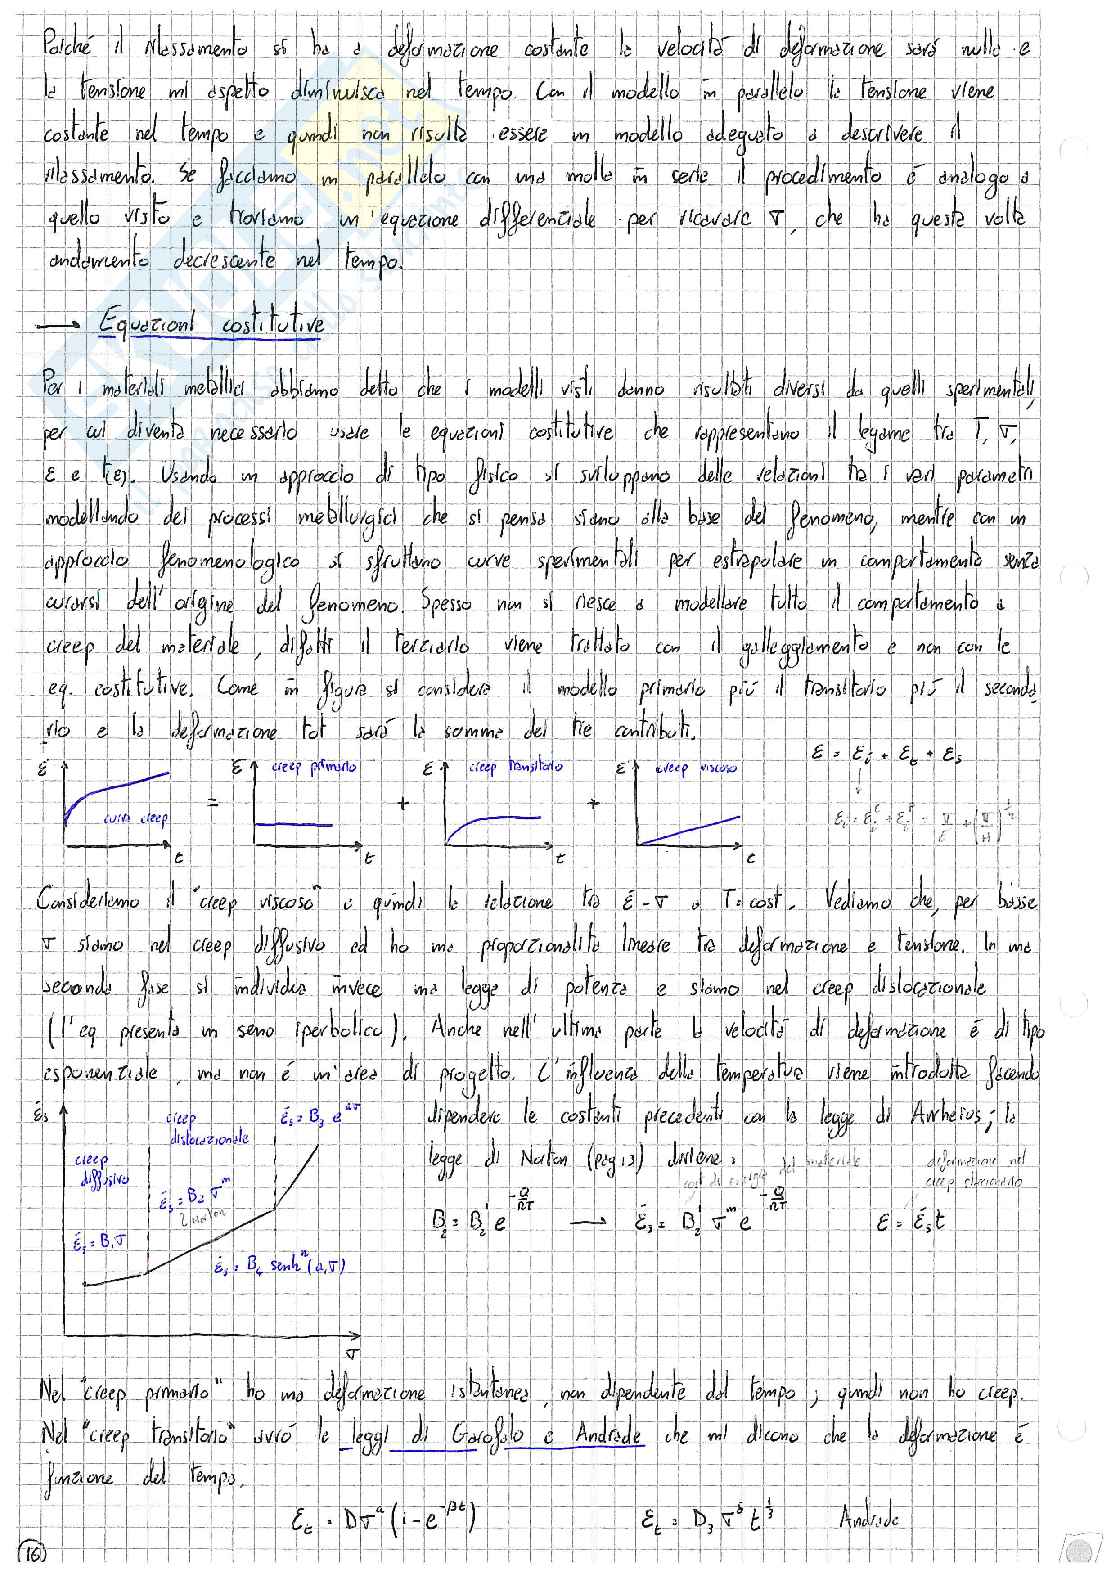 Poiché il rilassamento si ha a deformazione costante la velocità di deformazione sarà nulla e
la tensione mi aspetto diminuisca nel tempo. Con il modello in parallelo la tensione viene
costante nel tempo e quindi non risulta essere un modello adeguato a descrivere il
rilassamento. Se facciamo un parallelo con una molla in serie il procedimento è analogo a
quello visto e troviamo un'equazione differenziale per ricavare σ, che ha questa volta
andamento decrescente nel tempo.
→ Equazioni costitutive
Per i materiali metallici abbiamo detto che i modelli visti danno risultati diversi da quelli sperimentali,
per cui diventa necessario usare le equazioni costitutive che rappresentano il legame tra T, σ,
ε e t(ε). Usando un approccio di tipo fisico si sviluppano delle relazioni tra i vari parametri
modellando dei processi metallurgici che si pensa siano alla base del fenomeno, mentre con un
approccio fenomenologico si sfruttano curve sperimentali per estrapolare un comportamento senza
curarsi dell'origine del fenomeno. Spesso non si riesce a modellare tutto il comportamento a
creep del materiale, difatti il terziario viene trattato con il galleggiamento e non con le
eq. costitutive. Come in figura si considera il modello primario più il transitorio più il seconda
rio e la deformazione tot sarà la somma dei tre contributi.
ε = εi + εt + εs
ε creep primario
ε creep transitorio
ε creep viscoso
ε curva creep
= + +
t t t t
Consideriamo il "creep viscoso" e quindi la relazione tra ε̇ - σ a T=cost. Vediamo che, per basse
σ siamo nel creep diffusivo ed ho una proporzionalità lineare tra deformazione e tensione. In una
seconda fase si individua invece una legge di potenza e siamo nel creep dislocazionale
(l'eq presenta un seno iperbolico). Anche nell'ultima parte la velocità di deformazione è di tipo
esponenziale, ma non è un'area di progetto. L'influenza della temperatura viene introdotta facendo
dipendere le costanti precedenti con la legge di Arrhenius; la
legge di Norton (pag 13) diviene:
del materiale
deformazione nel
creep
B₂ = B₂' e^(-Q/RT) → ε̇s = B₂' σ^m e^(-Q/RT) ε = ε̇s t
ε̇s
creep
diffusivo
ε̇s = B₁σ
creep
dislocazionale
ε̇s = B₂ σ^m
Norton
ε̇s = B₃ e^(aσ)
ε̇s = B₄ senh^n (a₁σ)
σ
Nel "creep primario" ho una deformazione istantanea, non dipendente dal tempo; quindi non ho creep.
Nel "creep transitorio" avrò le leggi di Garofalo e Andrade che mi dicono che la deformazione è
funzione del tempo.
εt = Dσ^a (1-e^(-βt)) εt = D₃ σ^b t^(1/3) Andrade
16